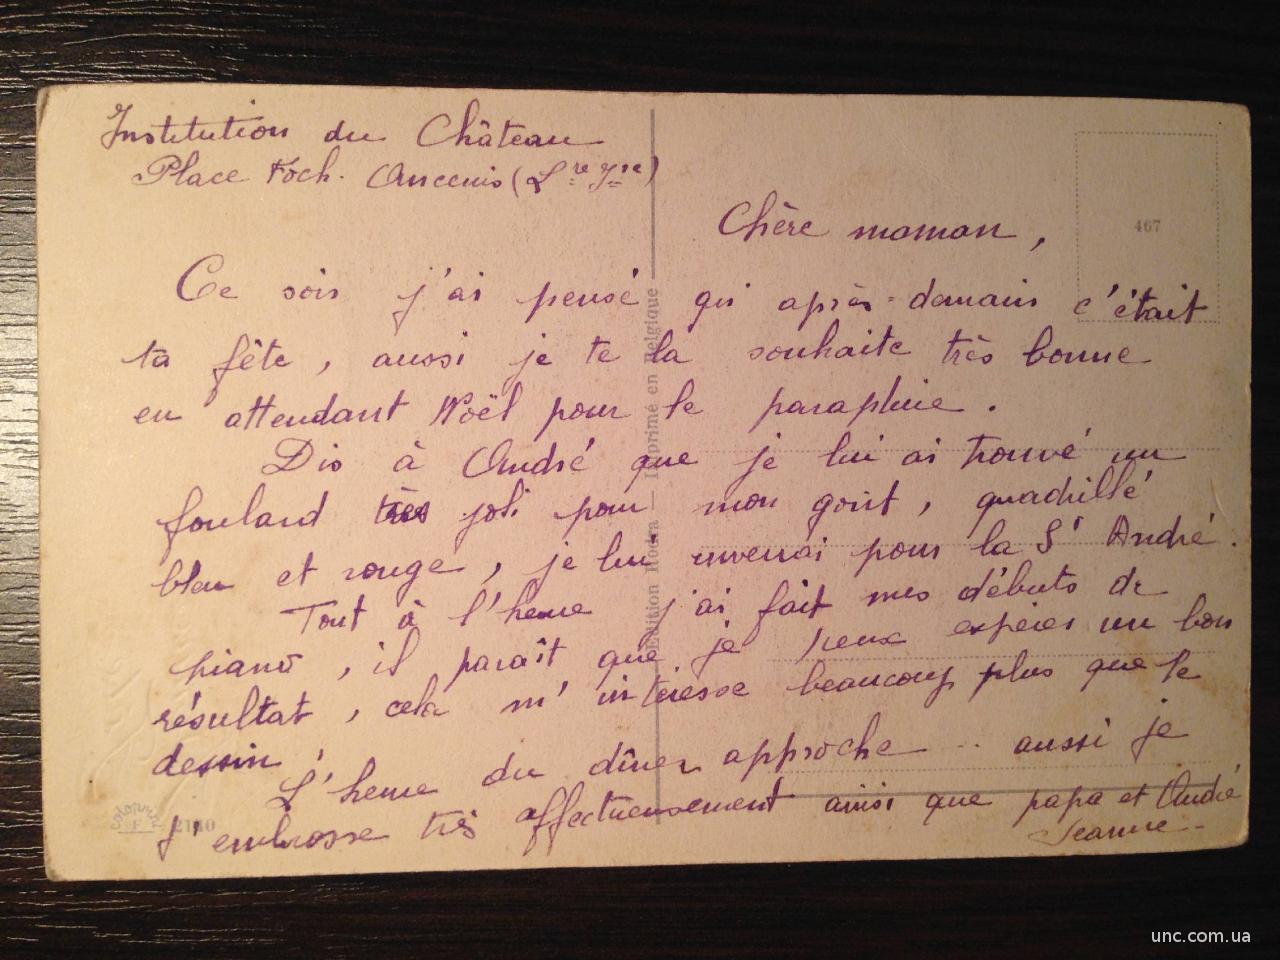 Institution du Château
Place Foch. Ancenis (Lre Jre)
Chère maman,
Ce soir j'ai pensé qui après-demain c'était
ta fête, aussi je te la souhaite très bonne
en attendant Noël pour le parapluie.
Dis à André que je lui ai trouvé un
foulard très joli pour mon goût, quadrillé
bleu et rouge, je lui enverrai pour la St André.
Tout à l'heure j'ai fait mes débuts de
piano, il paraît que je peux espérer un bon
résultat, cela m'intéresse beaucoup plus que le
dessin.
L'heure du dîner approche... aussi je
t'embrasse très affectueusement ainsi que papa et André
Jeanne
467
Edition — Imprimé en Belgique
2140
unc.com.ua